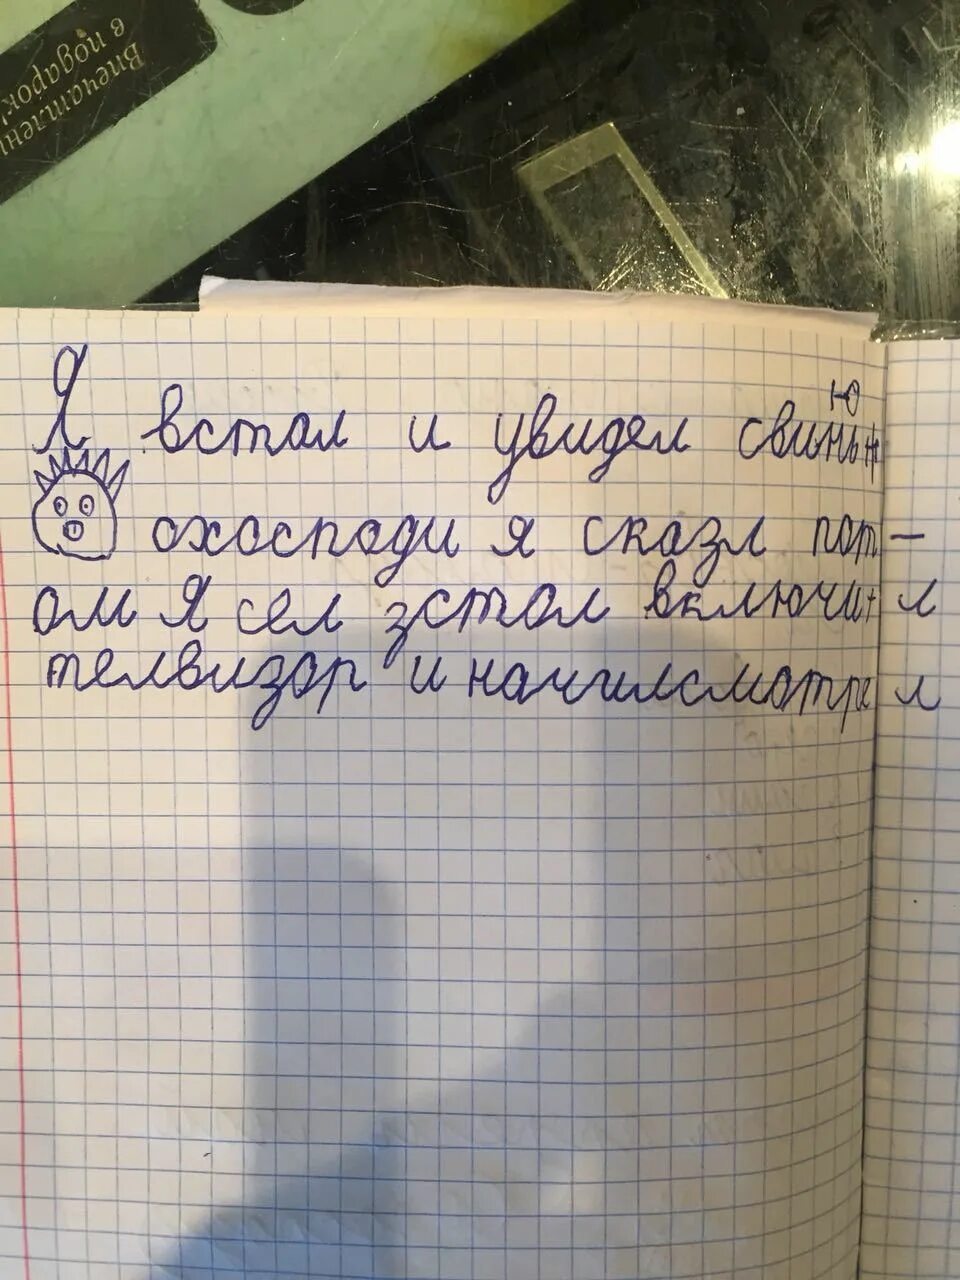 Впечатлені
в подарок
Я встал и увидел свинью
охоспади я сказл пот-
ом я сел зстол включил
телвизор и начилсмотрел